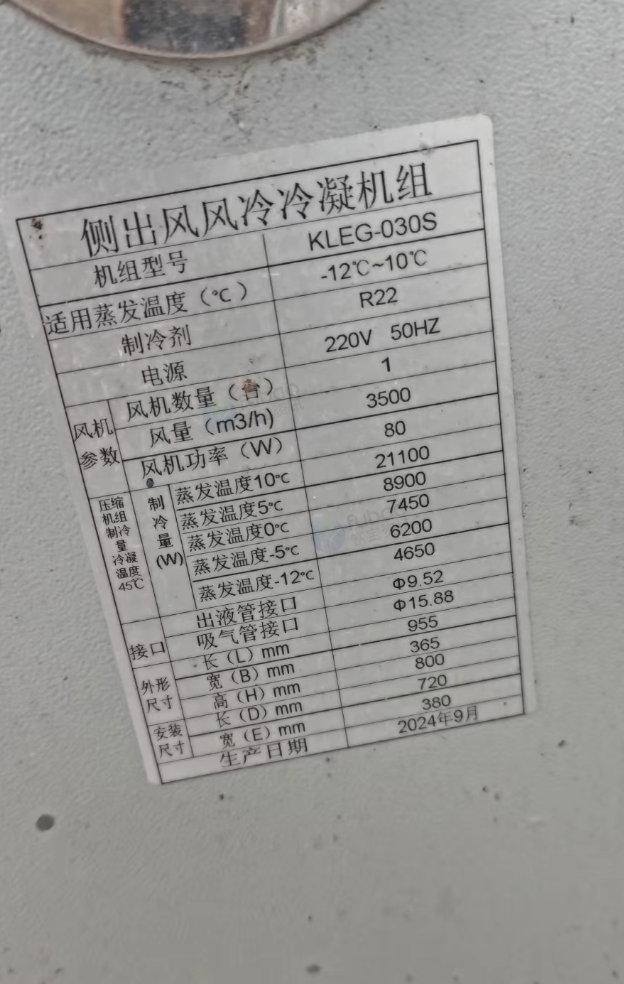 侧出风风冷冷凝机组
机组型号 KLEG-030S
适用蒸发温度（℃） -12℃~10℃
制冷剂 R22
电源 220V 50HZ
风机参数 风机数量（台） 1
风量（m3/h) 3500
风机功率（W） 80
压缩机组制冷量冷凝温度45℃ 制冷量(W) 蒸发温度10℃ 21100
蒸发温度5℃ 8900
蒸发温度0℃ 7450
蒸发温度-5℃ 6200
蒸发温度-12℃ 4650
接口 出液管接口 Φ9.52
吸气管接口 Φ15.88
外形尺寸 长（L）mm 955
宽（B）mm 365
高（H）mm 800
安装尺寸 长（D）mm 720
宽（E）mm 380
生产日期 2024年9月